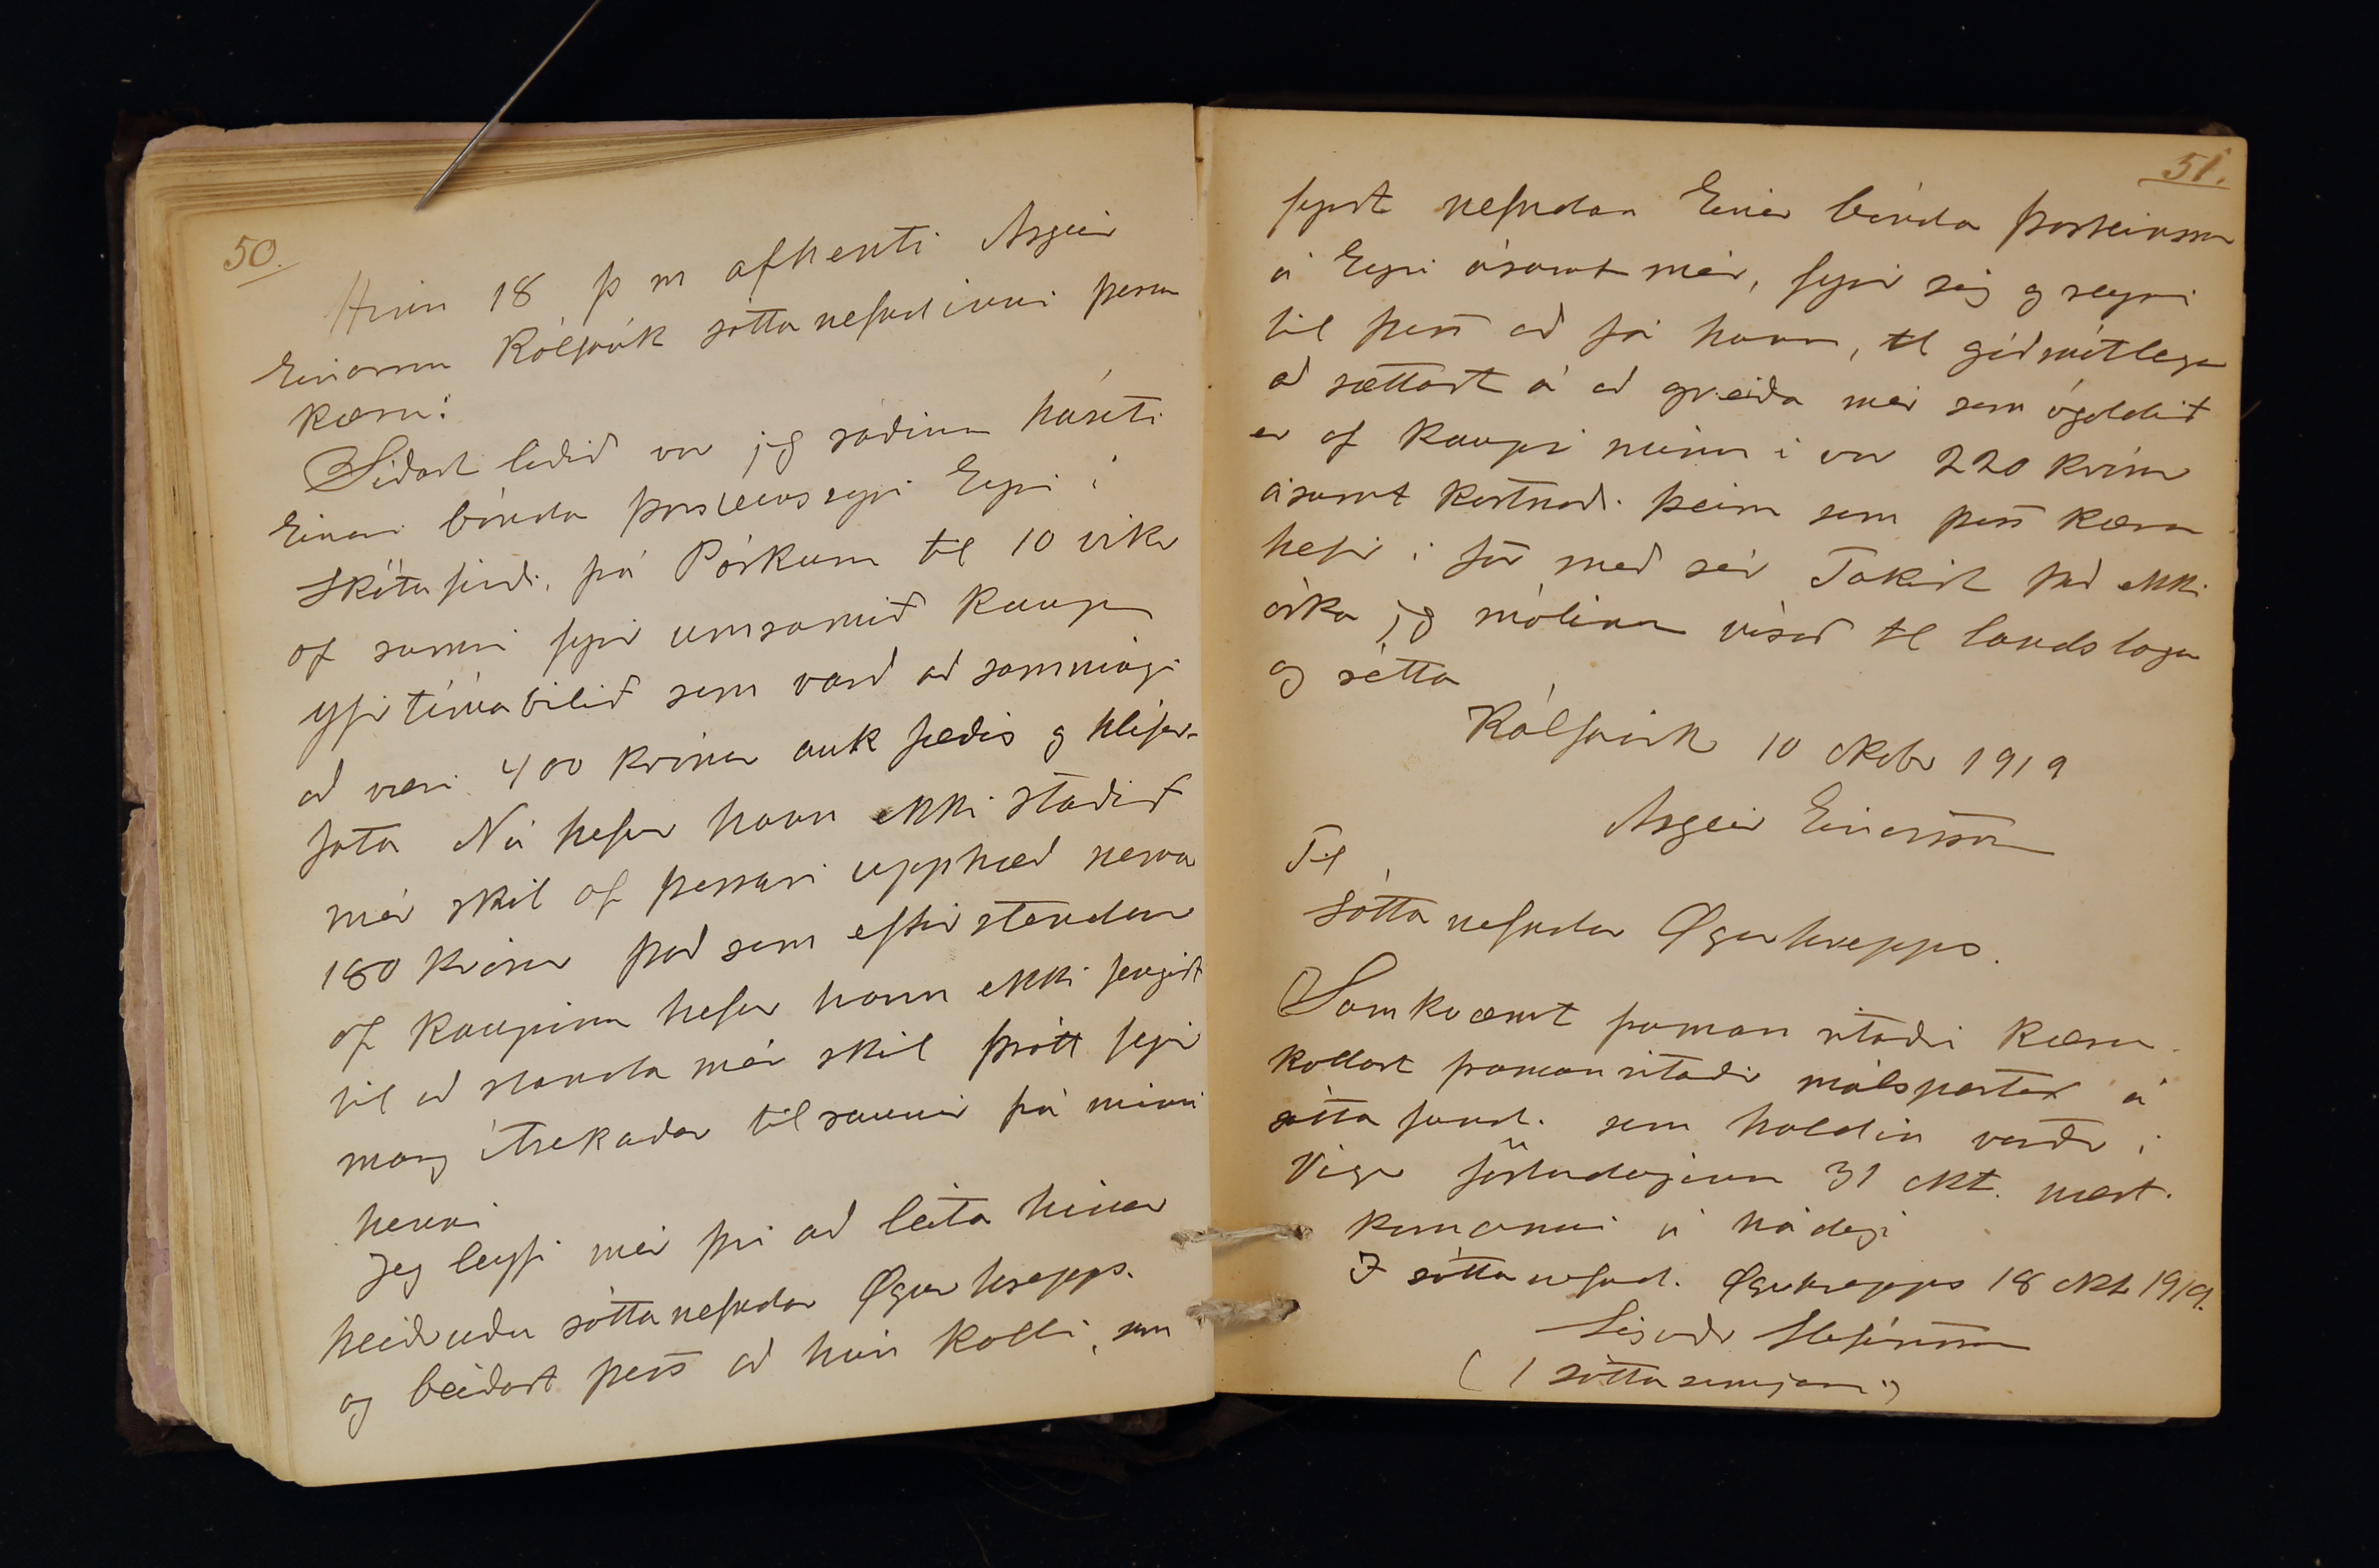 50.
Hinn 18 þ m afhenti Asgeir
Einarsson Kálfavík sáttanefndinni þessa
kæru:
Síðast liðið vor jeg ráðinn háseti
Einari bónda Þorsteinssyni Eyri í
Skötufirði, frá Páskum til 10 vikr
af sumri fyrir umsamið kaup
yfir tímabilið sem varð að samningi
að væri 400 krónur auk fæðis og hlífar-
fata Nú hefur hann ekki staðið
mér skil af þessari upphæð nema
180 krónur það sem eftir stendur
af kaupinu hefur hann ekki fengist
til að standa mér skil þrátt fyrir
marg ítrekaðar tilraunir frá minni
hendi
Jeg leyfi mér því að leita hinnar
heiðruðu sáttanefndar Ögurhrepps.
og beiðast þess að hún kalli, sem
51.
fyrst nefndan Einar bónda Þorsteinsson
á Eyri ásamt mér, fyrir sig og reyni
til þess að fá hann, til góðmótlega
að sættast á að greiða mér sem ógoldið
er af kaupi mínu í vor 220 krónur
ásamt kostnaði þeim sem þess kæra
hefir í för með sér Takist það ekki
óska jeg málinu vísað til landslaga
og rétta
Kálfavík 10 oktobr 1919
Asgeir Einarsson
Til
Sátta nefndar Ögurhrepps.
Samkvæmt framan ritaðri kæru
kallast framanritaðir málspartar á
sátta fund. sem haldin verðr í
Vigr föstudaginn 31 okt. næst.
komanni á hádegi
I sáttanefnd. Ögurhrepps 18 okt 1919.
Sigurðr Stefánsson
( 1 sáttasemjari)